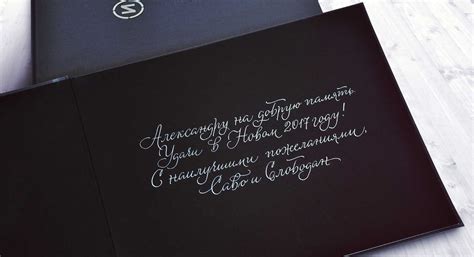 Александру на добрую память
Удачи в Новом 2017 году!
С наилучшими пожеланиями,
Саво и Слободан